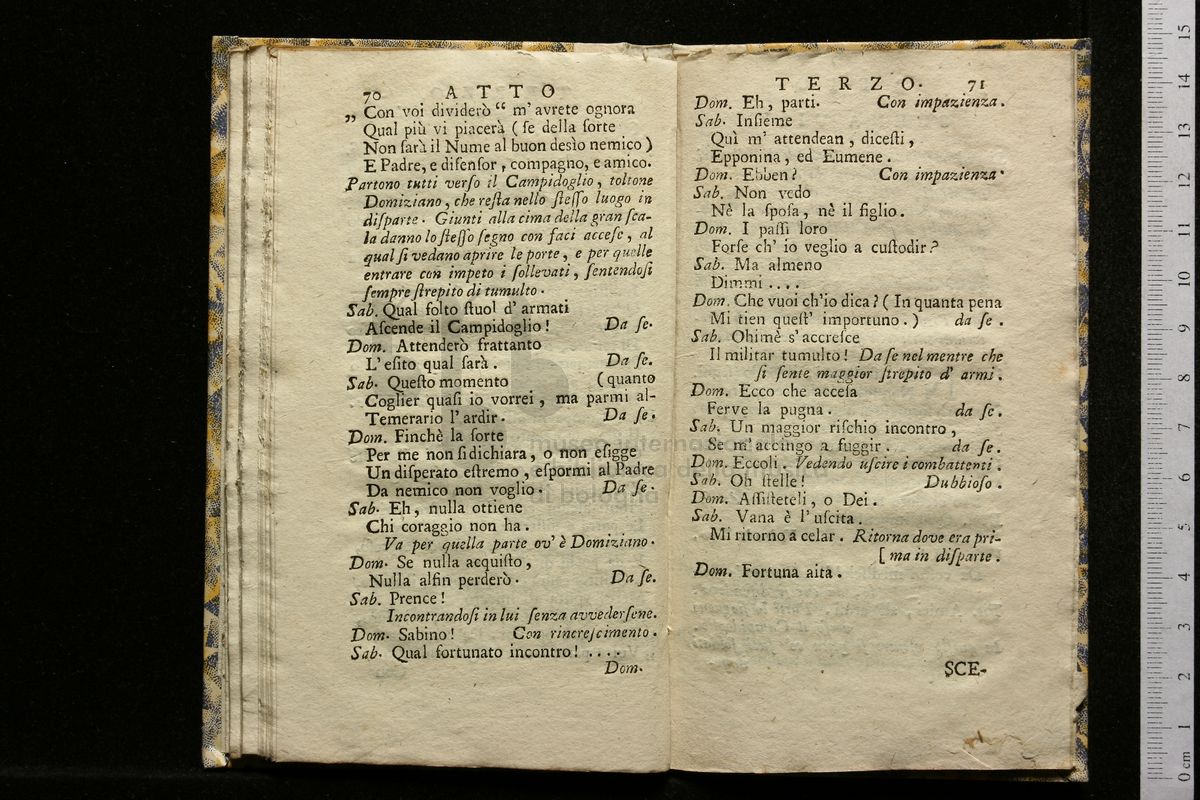 70 ATTO
„ Con voi dividerò “ m' avrete ognora
Qual più vi piacerà ( ſe della ſorte
Non ſarà il Nume al buon desìo nemico )
E Padre, e difenſor, compagno, e amico.
Partono tutti verſo il Campidoglio, toltone
Domiziano, che reſta nello ſteſſo luogo in
diſparte. Giunti alla cima della gran ſca-
la danno lo ſteſſo ſegno con faci acceſe, al
qual ſi vedano aprire le porte, e per quelle
entrare con impeto i ſollevati, ſentendoſi
ſempre ſtrepito di tumulto.
Sab. Qual folto ſtuol d' armati
Aſcende il Campidoglio! Da ſe.
Dom. Attenderò frattanto
L' eſito qual ſarà. Da ſe.
Sab. Queſto momento (quanto
Coglier quaſi io vorrei, ma parmi al-
Temerario l' ardir. Da ſe.
Dom. Finchè la ſorte
Per me non ſi dichiara, o non eſigge
Un diſperato eſtremo, eſpormi al Padre
Da nemico non voglio. Da ſe.
Sab. Eh, nulla ottiene
Chi coraggio non ha.
Va per quella parte ov' è Domiziano.
Dom. Se nulla acquiſto,
Nulla alfin perderò. Da ſe.
Sab. Prence!
Incontrandoſi in lui ſenza avvederſene.
Dom. Sabino! Con rincreſcimento.
Sab. Qual fortunato incontro! ....
Dom.
TERZO. 71
Dom. Eh, parti. Con impazienza.
Sab. Inſieme
Quì m' attendean, diceſti,
Epponina, ed Eumene.
Dom. Ebben? Con impazienza.
Sab. Non vedo
Nè la ſpoſa, nè il figlio.
Dom. I paſſi loro
Forſe ch' io veglio a cuſtodir?
Sab. Ma almeno
Dimmi ....
Dom. Che vuoi ch'io dica? ( In quanta pena
Mi tien queſt' importuno. ) da ſe.
Sab. Ohimè s' accreſce
Il militar tumulto! Da ſe nel mentre che
ſi ſente maggior ſtrepito d' armi.
Dom. Ecco che acceſa
Ferve la pugna. da ſe.
Sab. Un maggior riſchio incontro,
Se m' accingo a fuggir. da ſe.
Dom. Eccoli. Vedendo uſcire i combattenti.
Sab. Oh ſtelle! Dubbioſo.
Dom. Aſſiſteteli, o Dei.
Sab. Vana è l' uſcita.
Mi ritorno a celar. Ritorna dove era pri-
[ ma in diſparte.
Dom. Fortuna aita.
SCE-
0 cm 1 2 3 4 5 6 7 8 9 10 11 12 13 14 15
museo internazionale
di bologna